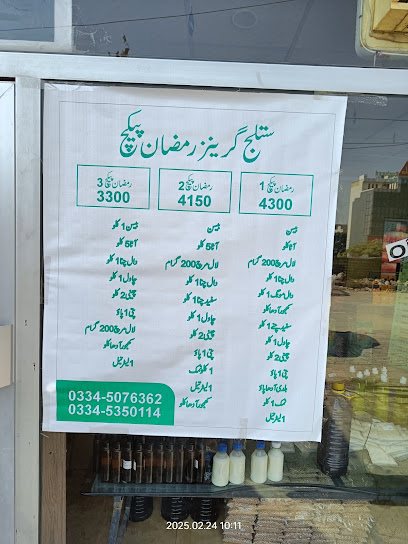 ستلج گرینز رمضان پیکج
رمضان پیکج 1
4300
بیسن
آٹا کلو
لال مرچ 200 گرام
دال چنا 1 کلو
دال مونگ 1 کلو
کھجور آدھا کلو
سفید چنے 1 کلو
چاول 1 کلو
چینی 2 کلو
پتی 1 پاؤ
ہلدی آدھا پاؤ
نمک 1 کلو
1 لیٹر تیل
رمضان پیکج 2
4150
بیسن 1 کلو
آٹا 5 کلو
لال مرچ 200 گرام
دال چنا 1 کلو
سفید چنا 1 کلو
چاول 1 کلو
چینی 2 کلو
پتی 1 پاؤ
1 کلو نمک
1 لیٹر تیل
کھجور آدھا کلو
رمضان پیکج 3
3300
بیسن 1 کلو
آٹا 5 کلو
دال چنا 1 کلو
چاول 1 کلو
چینی 2 کلو
پتی 1 پاؤ
لال مرچ 200 گرام
کھجور آدھا کلو
1 لیٹر تیل
0334-5076362
0334-5350114
2025.02.24 10:11